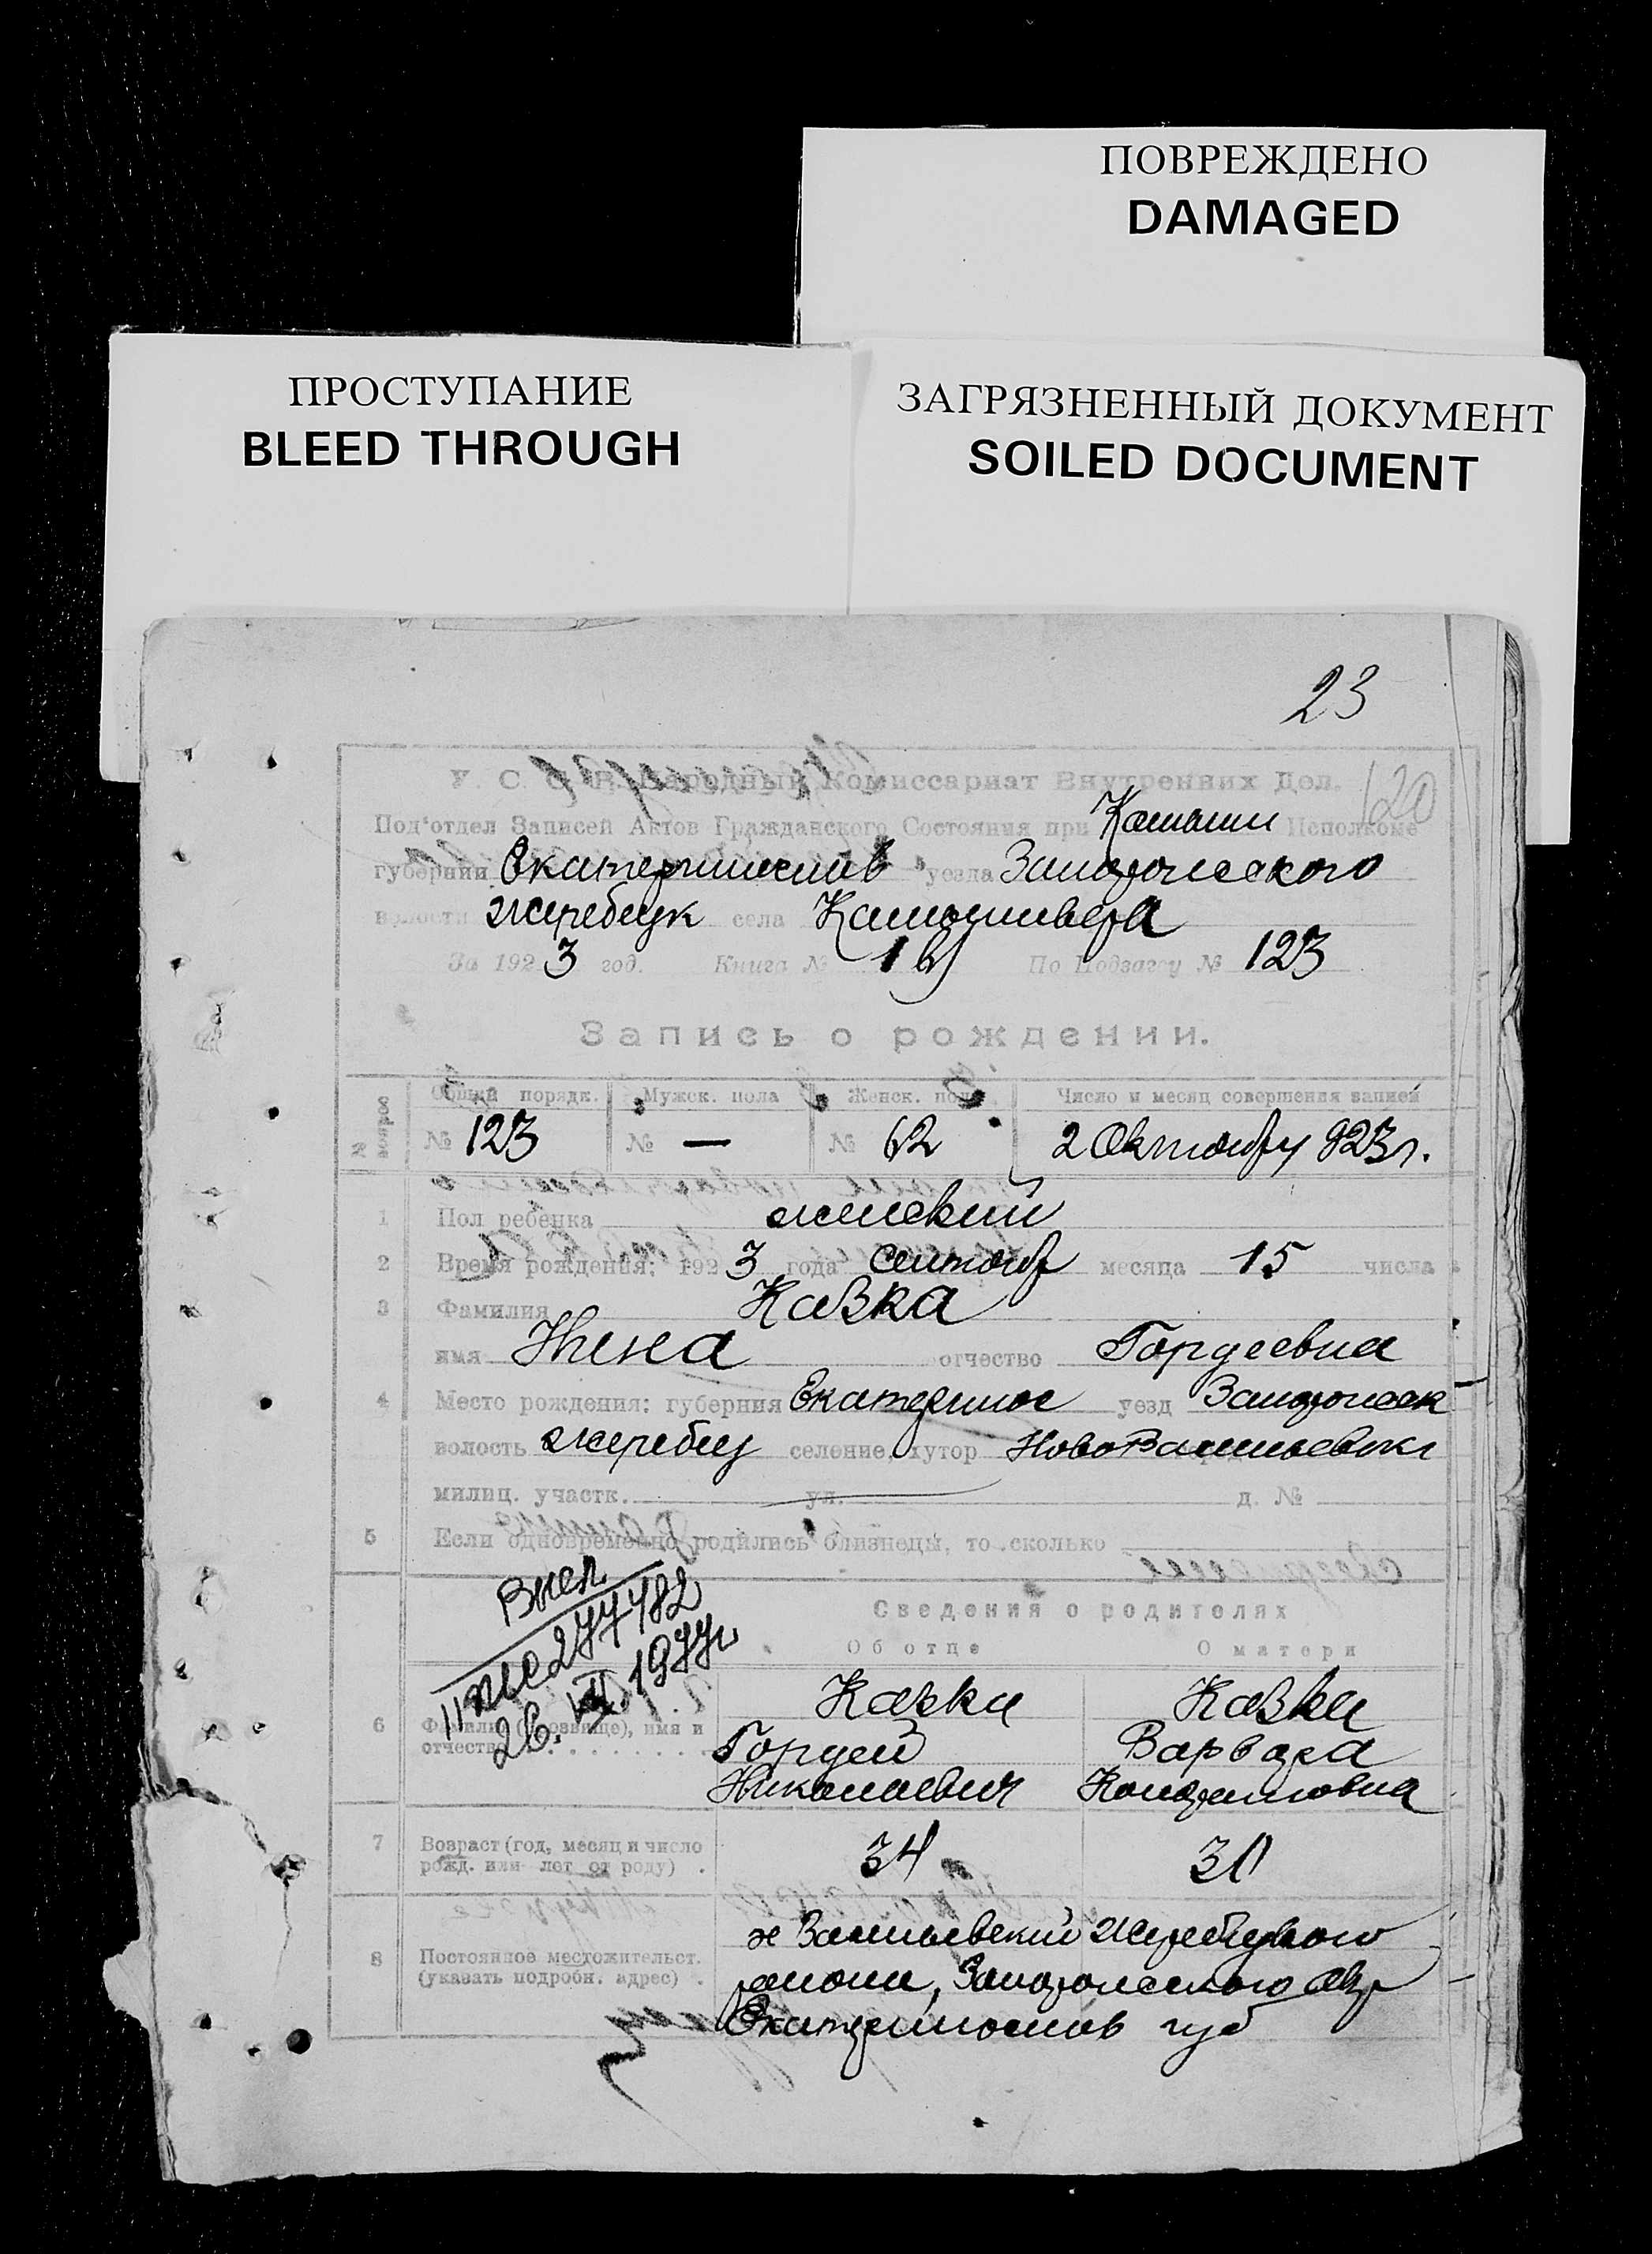 ПОВРЕЖДЕНО
DAMAGED
ПРОСТУПАНИЕ
BLEED THROUGH
ЗАГРЯЗНЕННЫЙ ДОКУМЕНТ
SOILED DOCUMENT
23
У. С. С. Р. Народный Комиссариат Внутренних Дел.
120
Под'отдел Записей Актов Гражданского Состояния при Исполкоме
губернии Екатеринослав уезда Запорожского
волости жеребецк села
За 1923 год. Книга № 1 По Подзагсу № 123
Запись о рождении.
Общий порядк. Мужск. пола Женск. пола Число и месяц совершения записи
№ 123 № — № 62 2 Октября 923 г.
1 Пол ребенка женский
2 Время рождения: 1923 года сентября месяца 15 числа
3 Фамилия Кавка
имя Нина отчество Гордеевна
4 Место рождения: губерния Екатеринос уезд Запорожск
волость жеребец селение, хутор
милиц. участк. ул. д. №
5 Если одновременно родились близнецы, то сколько
277482
26. VII. 1977г
Сведения о родителях
Об отце О матери
Кавка Кавка
6 Фамилия (прозвище), имя и отчество Гордей Варвара
Николаевич
7 Возраст (год, месяц и число рожд. или лет от роду) 34 30
8 Постоянное местожительст. (указать подробн. адрес)
х Васильевский Жеребецкого
района, Запорожского Окр
Екатеринослав губ